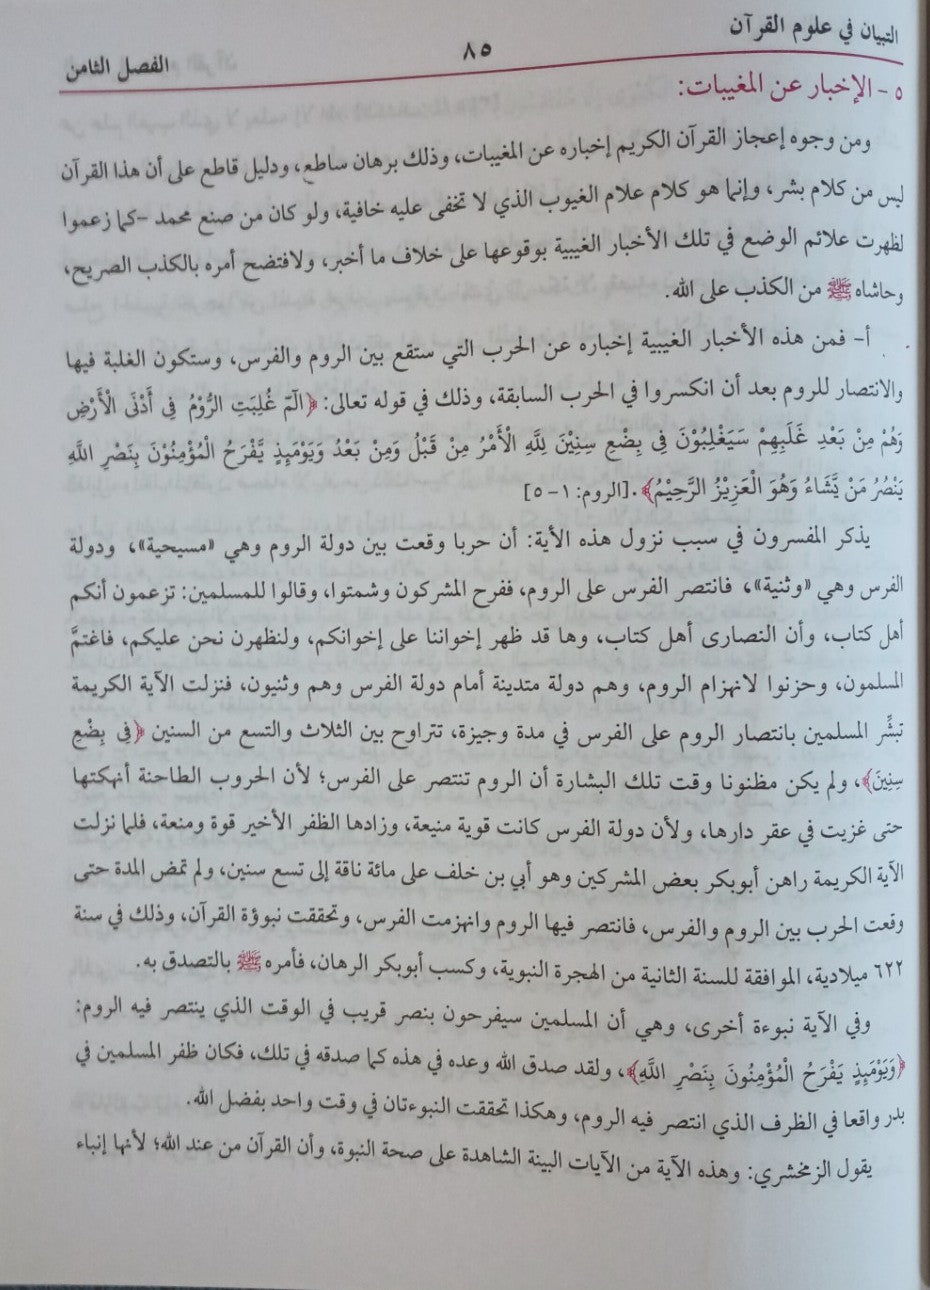 التبيان في علوم القرآن
٨٥
الفصل الثامن
٥ - الإخبار عن المغيبات:
ومن وجوه إعجاز القرآن الكريم إخباره عن المغيبات، وذلك برهان ساطع، ودليل قاطع على أن هذا القرآن
ليس من كلام بشر، وإنما هو كلام علام الغيوب الذي لا تخفى عليه خافية، ولو كان من صنع محمد -كما زعموا
لظهرت علائم الوضع في تلك الأخبار الغيبية بوقوعها على خلاف ما أخبر، ولافتضح أمره بالكذب الصريح،
وحاشاه ﷺ من الكذب على الله.
أ- فمن هذه الأخبار الغيبية إخباره عن الحرب التي ستقع بين الروم والفرس، وستكون الغلبة فيها
والانتصار للروم بعد أن انكسروا في الحرب السابقة، وذلك في قوله تعالى: ﴿الٓمّ غُلِبَتِ الرُّوْمُ فِي أَدْنَى الْأَرْضِ
وَهُمْ مِنْ بَعْدِ غَلَبِهِمْ سَيَغْلِبُوْنَ فِي بِضْعِ سِنِيْنَ لِلَّهِ الْأَمْرُ مِنْ قَبْلُ وَمِنْ بَعْدُ وَيَوْمَئِذٍ يَّفْرَحُ الْمُؤْمِنُوْنَ بِنَصْرِ اللَّهِ
يَنْصُرُ مَنْ يَّشَاءُ وَهُوَ الْعَزِيْزُ الرَّحِيْمُ﴾.[الروم: ١-٥]
يذكر المفسرون في سبب نزول هذه الأية: أن حربا وقعت بين دولة الروم وهي «مسيحية»، ودولة
الفرس وهي «وثنية»، فانتصر الفرس على الروم، ففرح المشركون وشمتوا، وقالوا للمسلمين: تزعمون أنكم
أهل كتاب، وأن النصارى أهل كتاب، وها قد ظهر إخواننا على إخوانكم، ولنظهرن نحن عليكم، فاغتمَّ
المسلمون، وحزنوا لانهزام الروم، وهم دولة متدينة أمام دولة الفرس وهم وثنيون، فنزلت الآية الكريمة
تبشِّر المسلمين بانتصار الروم على الفرس في مدة وجيزة، تتراوح بين الثلاث والتسع من السنين ﴿فِي بِضْعِ
سِنِيْنَ﴾، ولم يكن مظنونا وقت تلك البشارة أن الروم تنتصر على الفرس؛ لأن الحروب الطاحنة أنهكتها
حتى غزيت في عقر دارها، ولأن دولة الفرس كانت قوية منيعة، وزادها الظفر الأخير قوة ومنعة، فلما نزلت
الآية الكريمة راهن أبوبكر بعض المشركين وهو أبي بن خلف على مائة ناقة إلى تسع سنين، ولم تمض المدة حتى
وقعت الحرب بين الروم والفرس، فانتصر فيها الروم وانهزمت الفرس، وتحققت نبوؤة القرآن، وذلك في سنة
٦٢٢ ميلادية، الموافقة للسنة الثانية من الهجرة النبوية، وكسب أبوبكر الرهان، فأمره ﷺ بالتصدق به.
وفي الآية نبوءة أخرى، وهي أن المسلمين سيفرحون بنصر قريب في الوقت الذي ينتصر فيه الروم:
﴿وَيَوْمَئِذٍ يَفْرَحُ الْمُؤْمِنُونَ بِنَصْرِ اللَّهِ﴾، ولقد صدق الله وعده في هذه كما صدقه في تلك، فكان ظفر المسلمين في
بدر واقعا في الظرف الذي انتصر فيه الروم، وهكذا تحققت النبوءتان في وقت واحد بفضل الله.
يقول الزمخشري: وهذه الآية من الآيات البينة الشاهدة على صحة النبوة، وأن القرآن من عند الله؛ لأنها إنباء